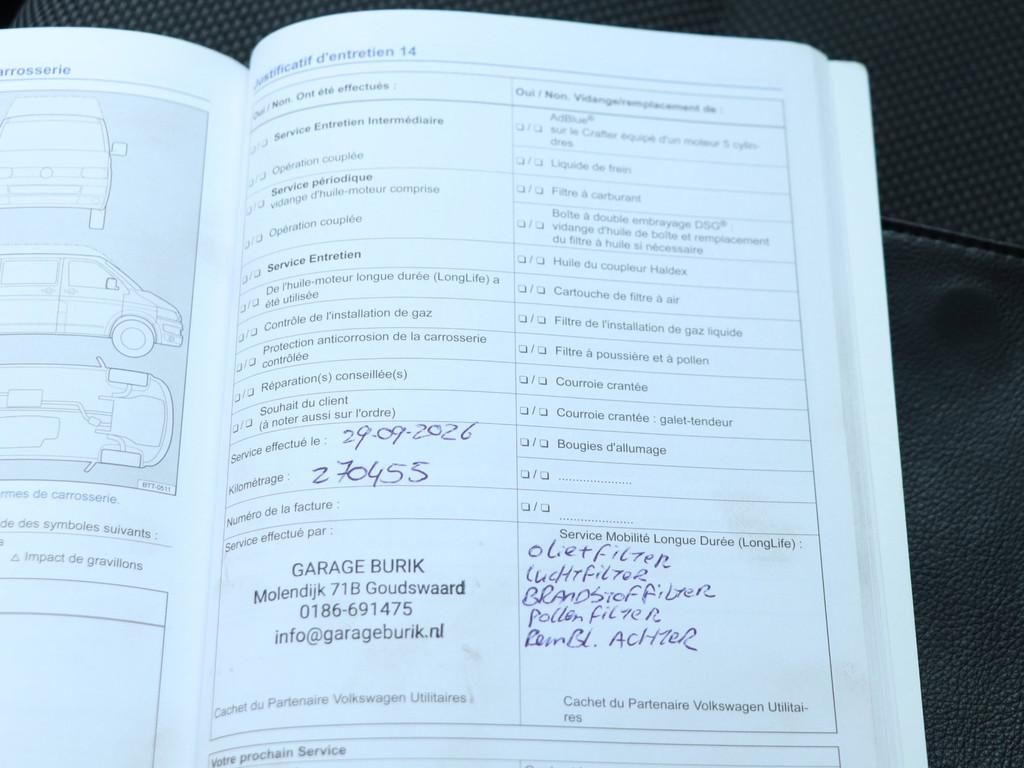 arrosserie
BTT-0511
rmes de carrosserie.
de des symboles suivants :
⚠ Impact de gravillons
Justificatif d'entretien 14
Oui / Non. Ont été effectués :
❏ / ❏ Service Entretien Intermédiaire
❏ / ❏ Opération couplée
❏ / ❏ Service périodique
vidange d'huile-moteur comprise
❏ / ❏ Opération couplée
❏ / ❏ Service Entretien
❏ / ❏ De l'huile-moteur longue durée (LongLife) a
été utilisée
❏ / ❏ Contrôle de l'installation de gaz
❏ / ❏ Protection anticorrosion de la carrosserie
contrôlée
❏ / ❏ Réparation(s) conseillée(s)
❏ / ❏ Souhait du client
(à noter aussi sur l'ordre)
Service effectué le : 29-09-2026
Kilométrage : 270455
Numéro de la facture :
Service effectué par :
GARAGE BURIK
Molendijk 71B Goudswaard
0186-691475
info@garageburik.nl
Cachet du Partenaire Volkswagen Utilitaires
Oui / Non. Vidange/remplacement de :
❏ / ❏ AdBlue®
sur le Crafter équipé d'un moteur 5 cylin-
dres
❏ / ❏ Liquide de frein
❏ / ❏ Filtre à carburant
❏ / ❏ Boîte à double embrayage DSG® :
vidange d'huile de boîte et remplacement
du filtre à huile si nécessaire
❏ / ❏ Huile du coupleur Haldex
❏ / ❏ Cartouche de filtre à air
❏ / ❏ Filtre de l'installation de gaz liquide
❏ / ❏ Filtre à poussière et à pollen
❏ / ❏ Courroie crantée
❏ / ❏ Courroie crantée : galet-tendeur
❏ / ❏ Bougies d'allumage
❏ / ❏ .....................
❏ / ❏ .....................
Service Mobilité Longue Durée (LongLife) :
olie+filTER
luchtfilTER
BRANDStoffilTER
PollenfilTER
RemBl. ACHTER
Cachet du Partenaire Volkswagen Utilitai-
res
Votre prochain Service